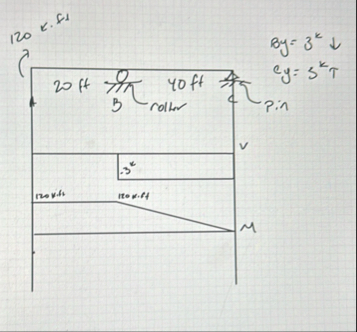 120 K.ft
By = 3ᵏ ↓
Cy = 3ᵏ ↑
20 ft
40 ft
B
roller
C
Pin
V
-3ᵏ
120 K.ft
120 K.ft
M